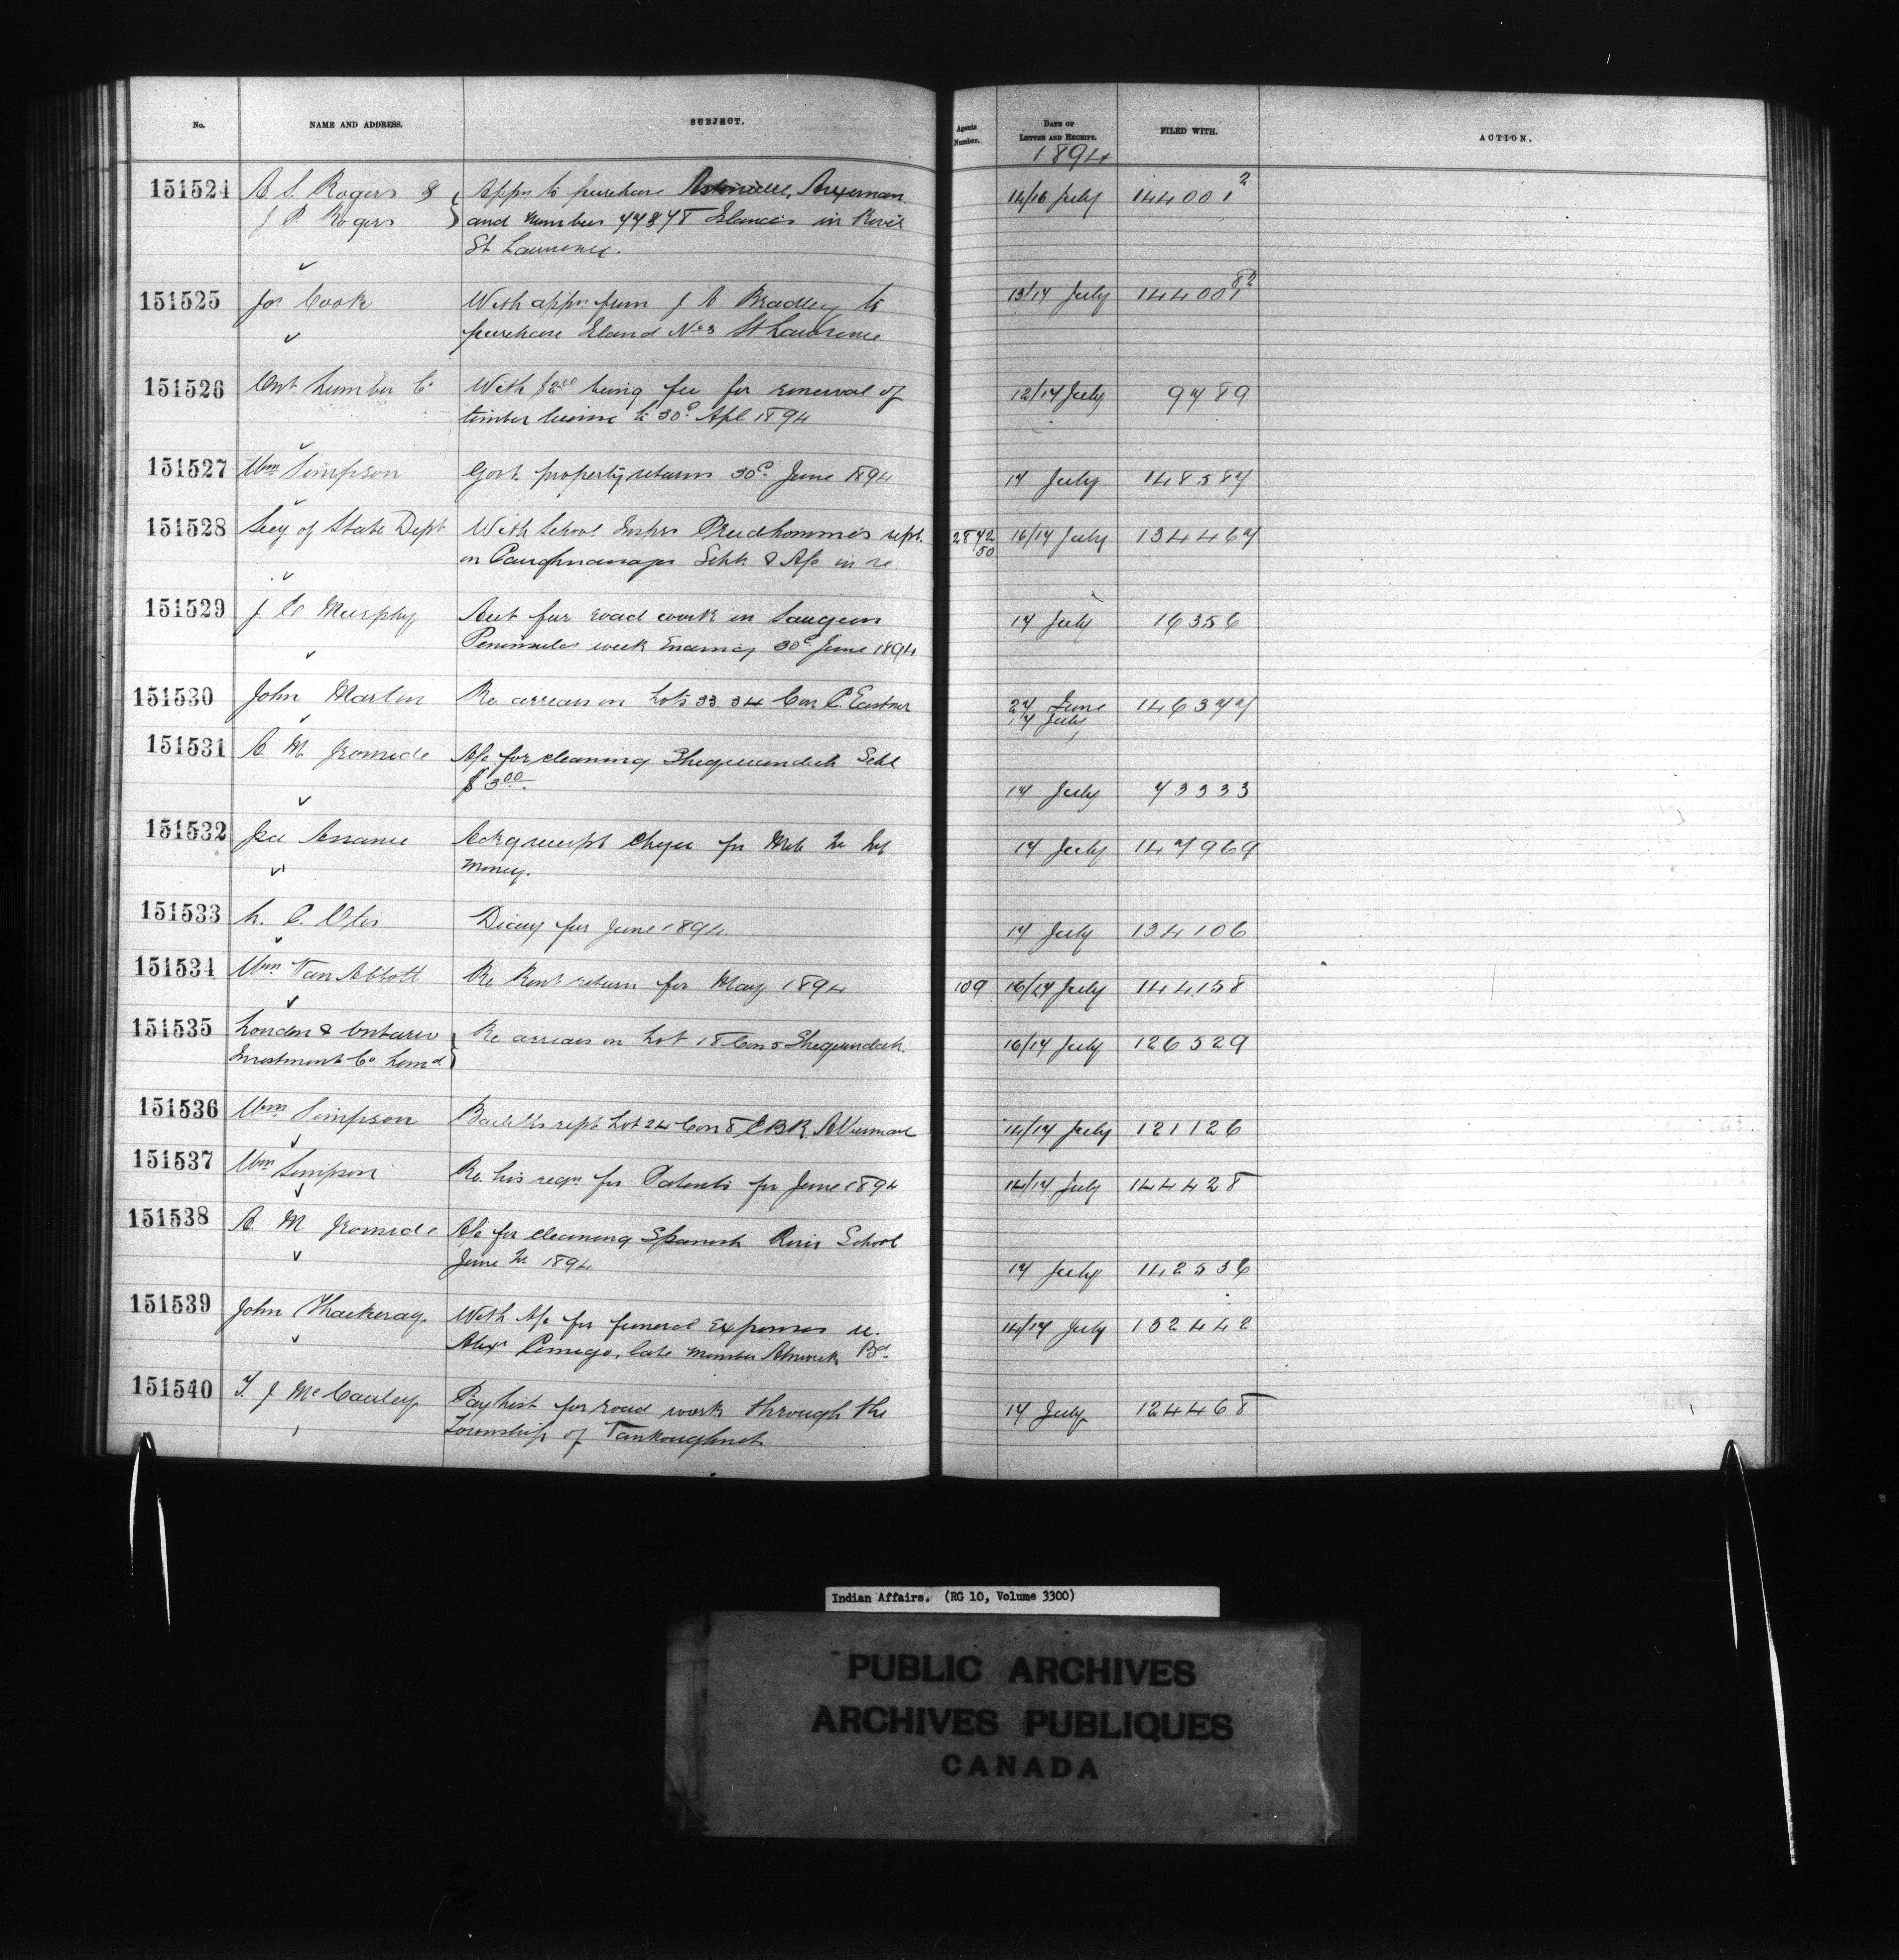 No. NAME AND ADDRESS. SUBJECT. Agents Number. DATE OF LETTER AND RECEIPT. FILED WITH. ACTION.
1894
151524 A. S. Rogers & Appn to purchase 14/16 July 144001²
J. P. Rogers and number Islands in River
St Lawrence.
151525 Jos Cook With appn from J C Bradley to 13/17 July
purchase Island No 3 St Lawrence
151526 Ont. Lumber Co With $2.00 being fee for renewal of 12/17 July 9789
timber license to 30th Apl 1894
151527 Wm Simpson Govt. property returns 30th June 1894 17 July 148587
151528 Secy of State Dept With School Inspr Prudhomme's rept. 2872 50 16/17 July 134467
on Caughnawaga Schls & A/c in re.
151529 J. C Murphy Acct for road work in Saugeen 17 July 16356
Peninsula week Ending 30th June 1894
151530 John Martin Re. arrears on Lots 33. 34 Con Eastnor 27 June 146377
17 July
151531 A. M. Ironside A/c for cleaning Sheguiandah Schl
$3.00. 17 July 73333
151532 Ackg receipt cheque for 17 July 147969
money.
151533 L. C. Otis Diary for June 1894 17 July 134106
151534 Wm Van Abbott Re Rent return for May 1894 109 16/17 July 144158
151535 London & Ontario Re arrears on Lot 18 Con 5 Sheguiandah. 16/17 July 126529
Investment Co Limd
151536 Wm Simpson rept Lot 24 Con 8 E.B.R. Albemarle 14/17 July 121126
151537 Wm Simpson Re. his reqn for Patents for June 1894 14/17 July 144428
151538 A. M Ironside A/c for cleaning Spanish River School
June 1894 17 July 142536
151539 John Thackeray. With A/c for funeral Expenses re. 14/17 July 132442
Alexr Comego, late member Alnwick Bd.
151540 T. J McCauley Pay List for road work through the 17 July 124468
Township of Vankoughnet
Indian Affairs. (RG 10, Volume 3300)
PUBLIC ARCHIVES
ARCHIVES PUBLIQUES
CANADA